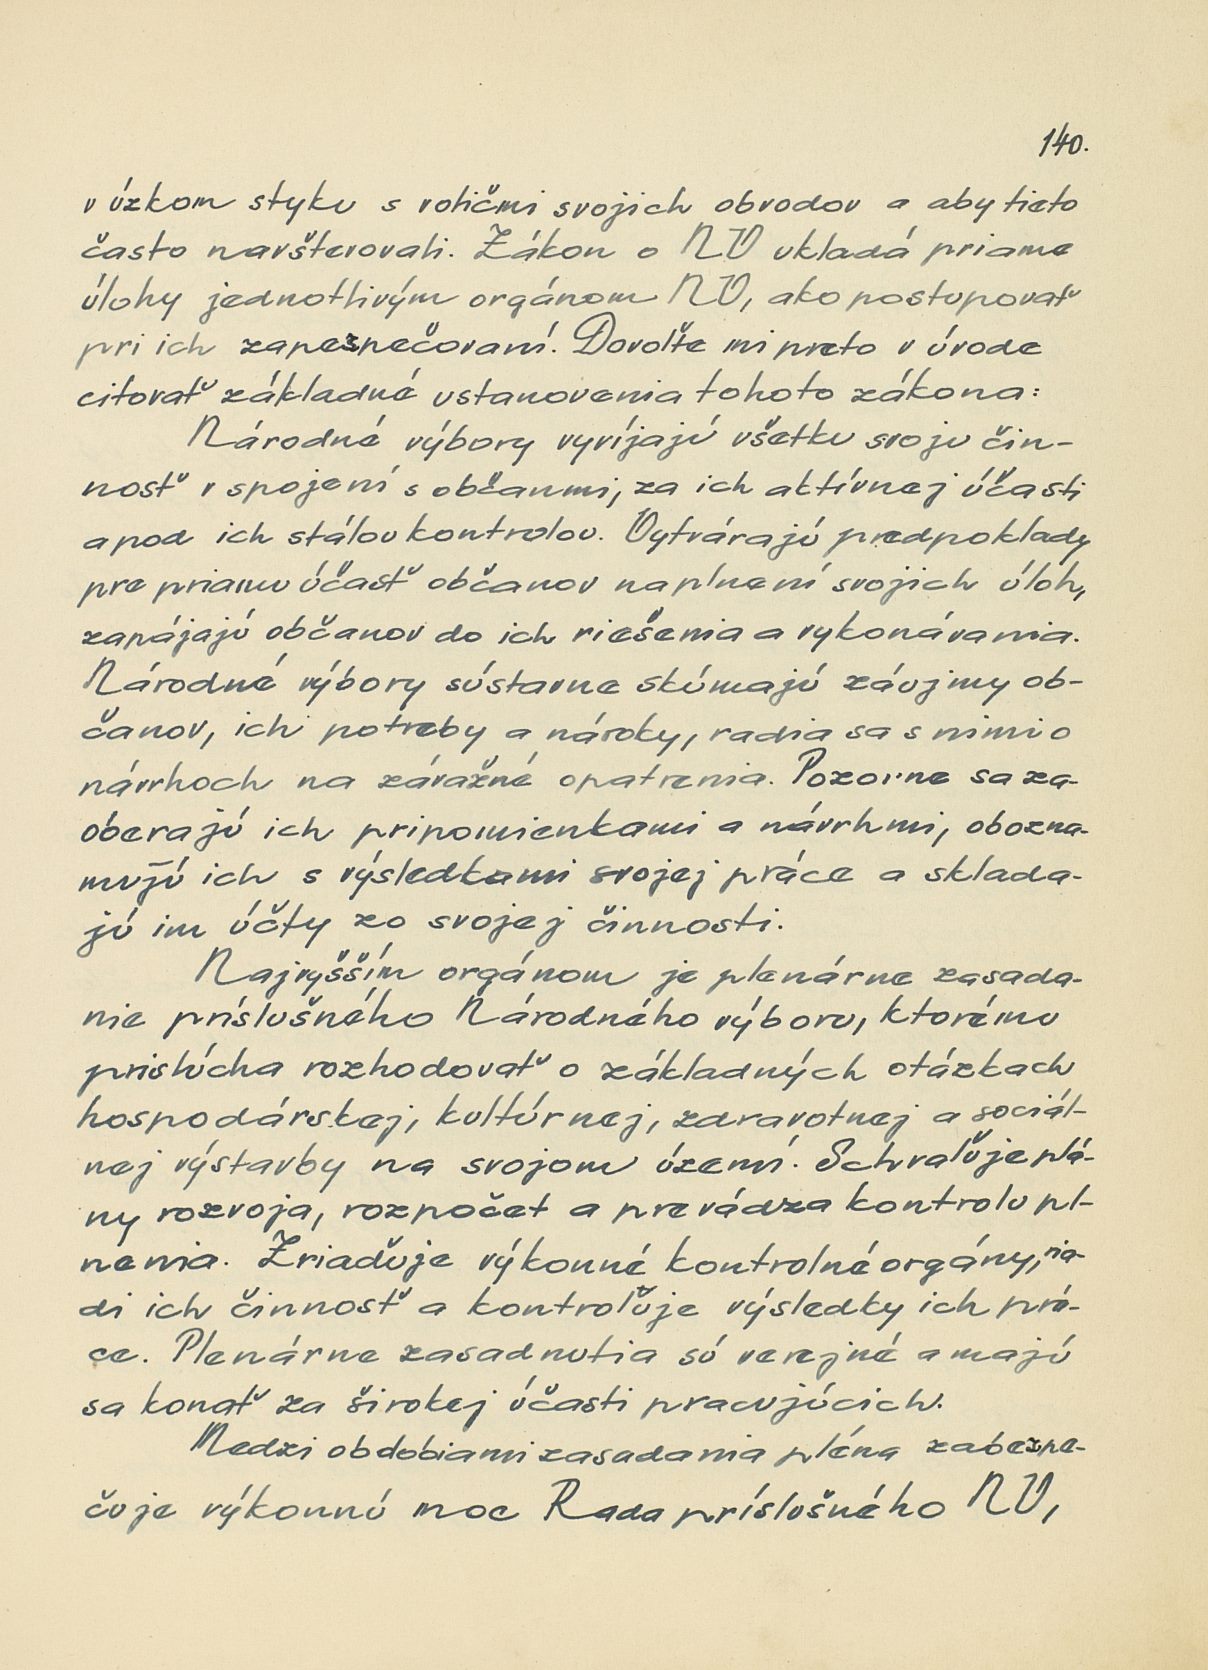 140.
v úzkom styku s voličmi svojich obvodov a aby tieto
často navšterovali. Zákon o NV ukladá priame
úlohy jednotlivým orgánom NV, ako postupovať
pri ich zapezpečovaní. Dovoľte mi preto v úvode
citovať základné ustanovenia tohoto zákona:
Národné výbory vyvíjajú všetku svoju čin-
nosť v spojení s občanmi, za ich aktívnej účasti
a pod ich stálou kontrolou. Vytvárajú predpoklady
pre priamu účasť občanov na plnení svojich úloh,
zapájajú občanov do ich riešenia a vykonávania.
Národné výbory sústavne skúmajú záujmy ob-
čanov, ich potreby a nároky, radia sa s nimi o
návrhoch na závažné opatrenia. Pozorne sa za-
oberajú ich pripomienkami a návrhmi, obozna-
mujú ich s výsledkami svojej práce a sklada-
jú im účty zo svojej činnosti.
Najvyšším orgánom je plenárne zasada-
nie príslušného Národného výboru, ktorému
prislúcha rozhodovať o základných otázkach
hospodárskej, kultúrnej, zdravotnej a sociál-
nej výstavby na svojom území. Schvaľuje plá-
ny rozvoja, rozpočet a prevádza kontrolu pl-
nenia. Zriaďuje výkonné kontrolné orgány, ria-
di ich činnosť a kontroľuje výsledky ich prá-
ce. Plenárne zasadnutia sú verejné a majú
sa konať za širokej účasti pracujúcich.
Medzi obdobiami zasadania pléna zabezpe-
čuje výkonnú moc Rada príslušného NV,